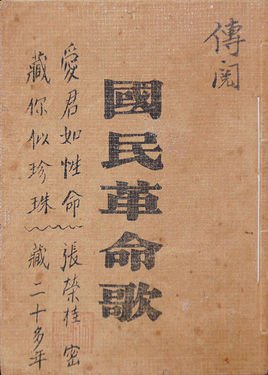 傳閱
國民革命歌
愛君如性命 張榮桂 密
藏你似珍珠 藏二十多年